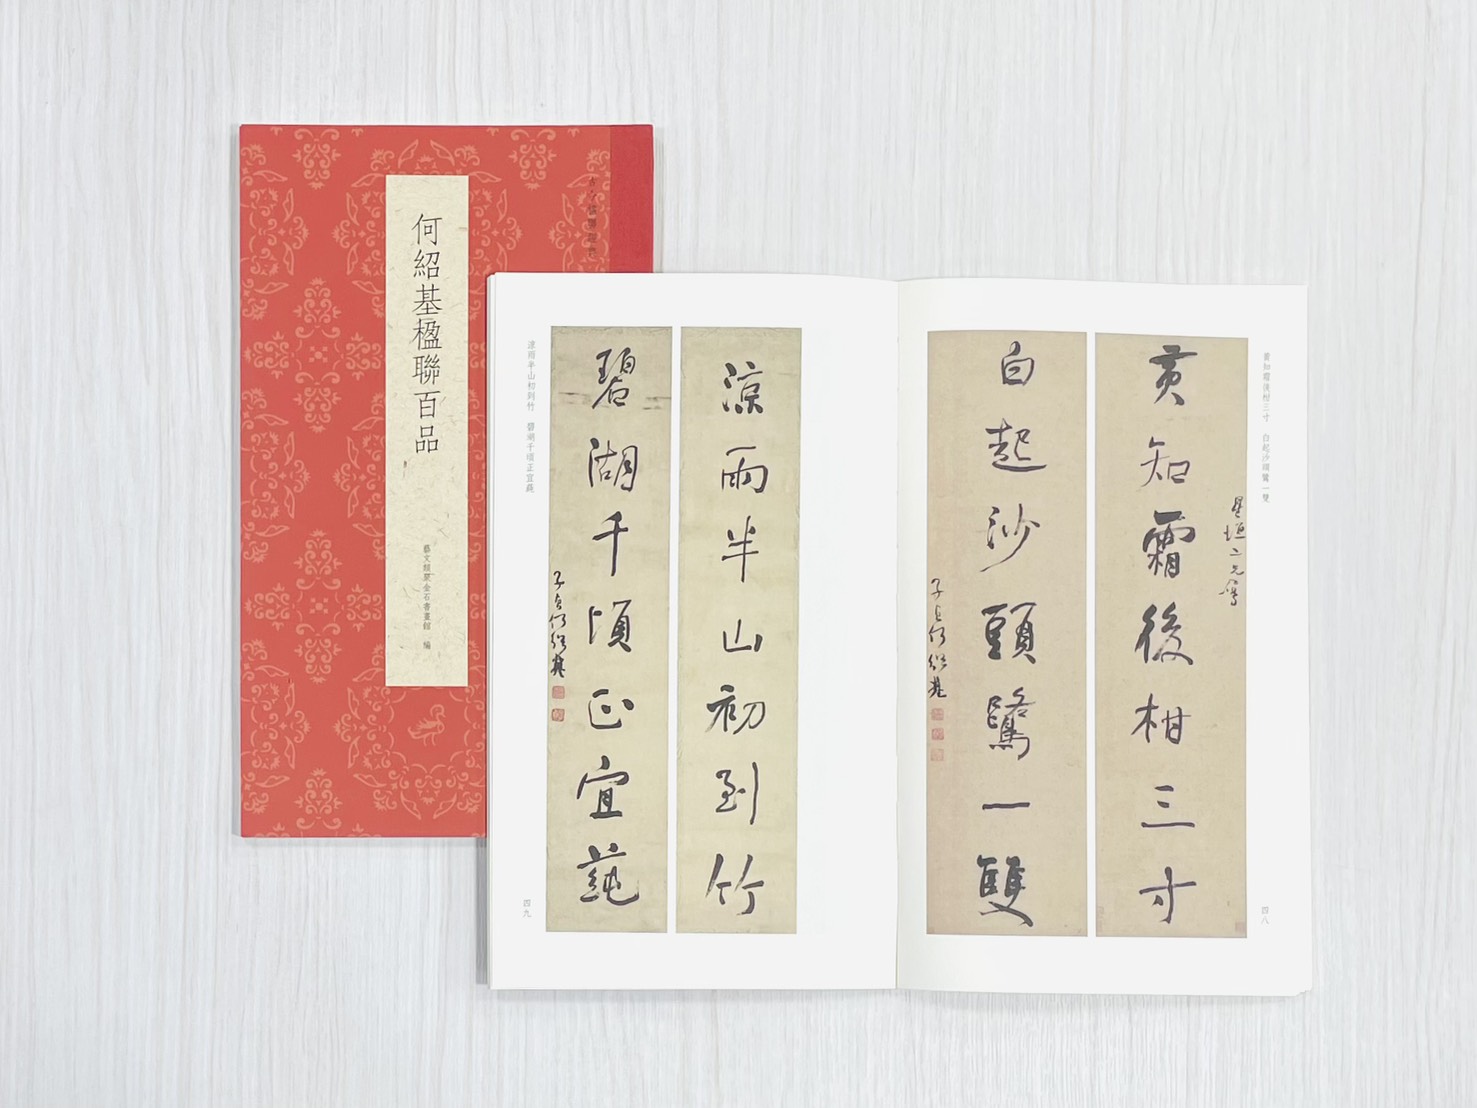 何紹基楹聯百品
藝文類聚金石書畫館 編
黃知霜後柑三寸 白起沙頭鷺一雙
星垣二兄屬
黃知霜後柑三寸
白起沙頭鷺一雙
子貞何紹基
四八
涼雨半山初到竹
碧湖千頃正宜蓴
子貞何紹基
涼雨半山初到竹 碧湖千頃正宜蓴
四九